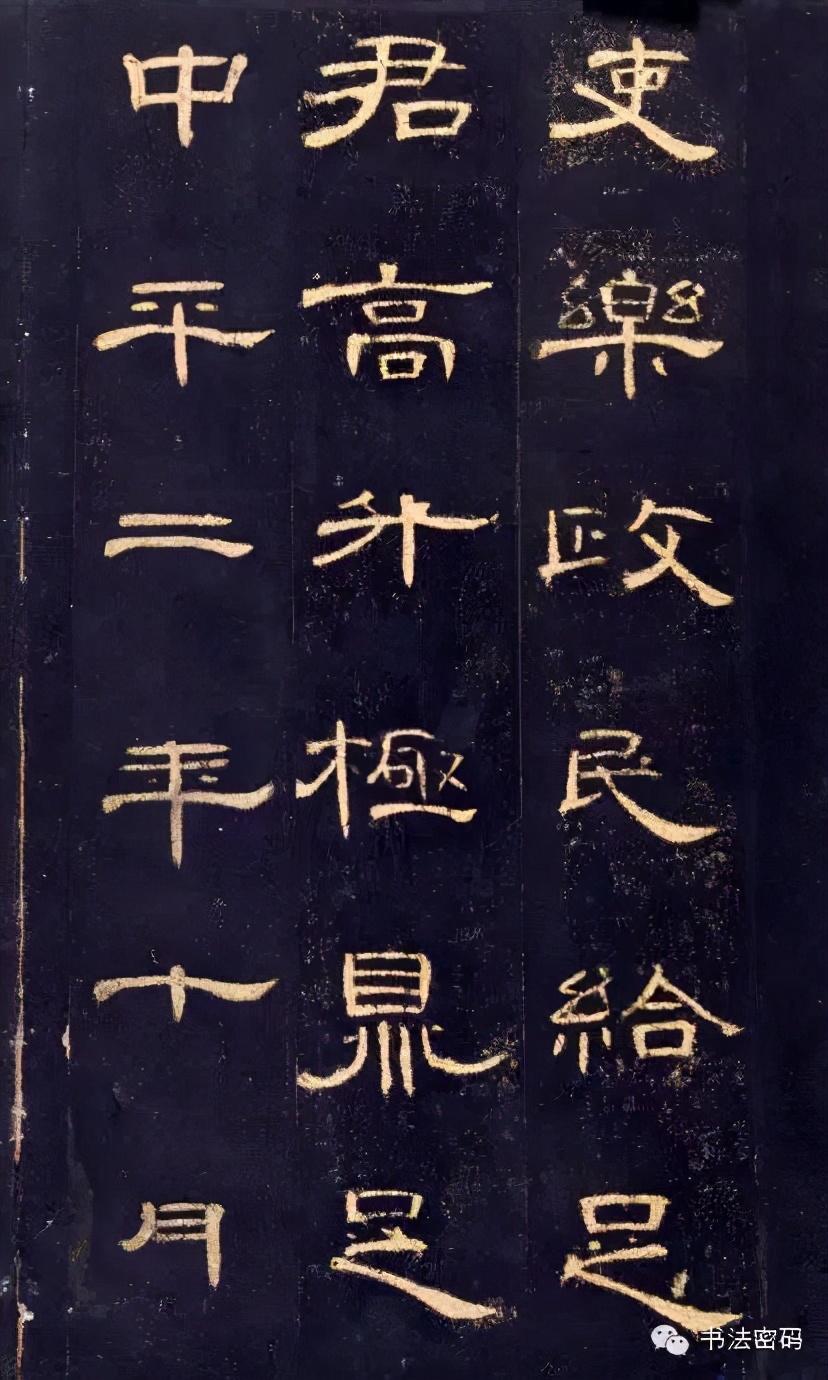 吏樂政民給足
君高升極鼎足
中平二年十月
书法密码